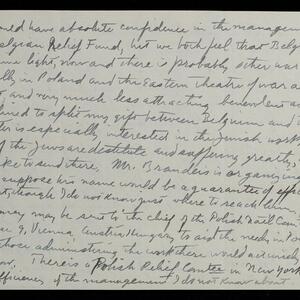 ould have absolute confidence in the managem
elgian Relief Fund, but we both feel that Belg
me light, now and there is probably other war
lly in Poland and the Eastern theatre of war a
t, and very much less attracting benevolent a
lined to split my gift between Belgium and
ter is especially interested in the Jewish work
of the Jews are destitute and suffering greatly,
ke to send there. Mr. Brandeis is organizing
suppose his name would be a guarantee of effic
t, though I do not know just where to reach him
oney may be sent to the chief of the Polish Natl Com
Vienna Austria Hungary to aid the needy in Po
those administering the work there would act wisely
ow. There is a Polish Relief Comtee in New York
fficiency of the management I do not know about